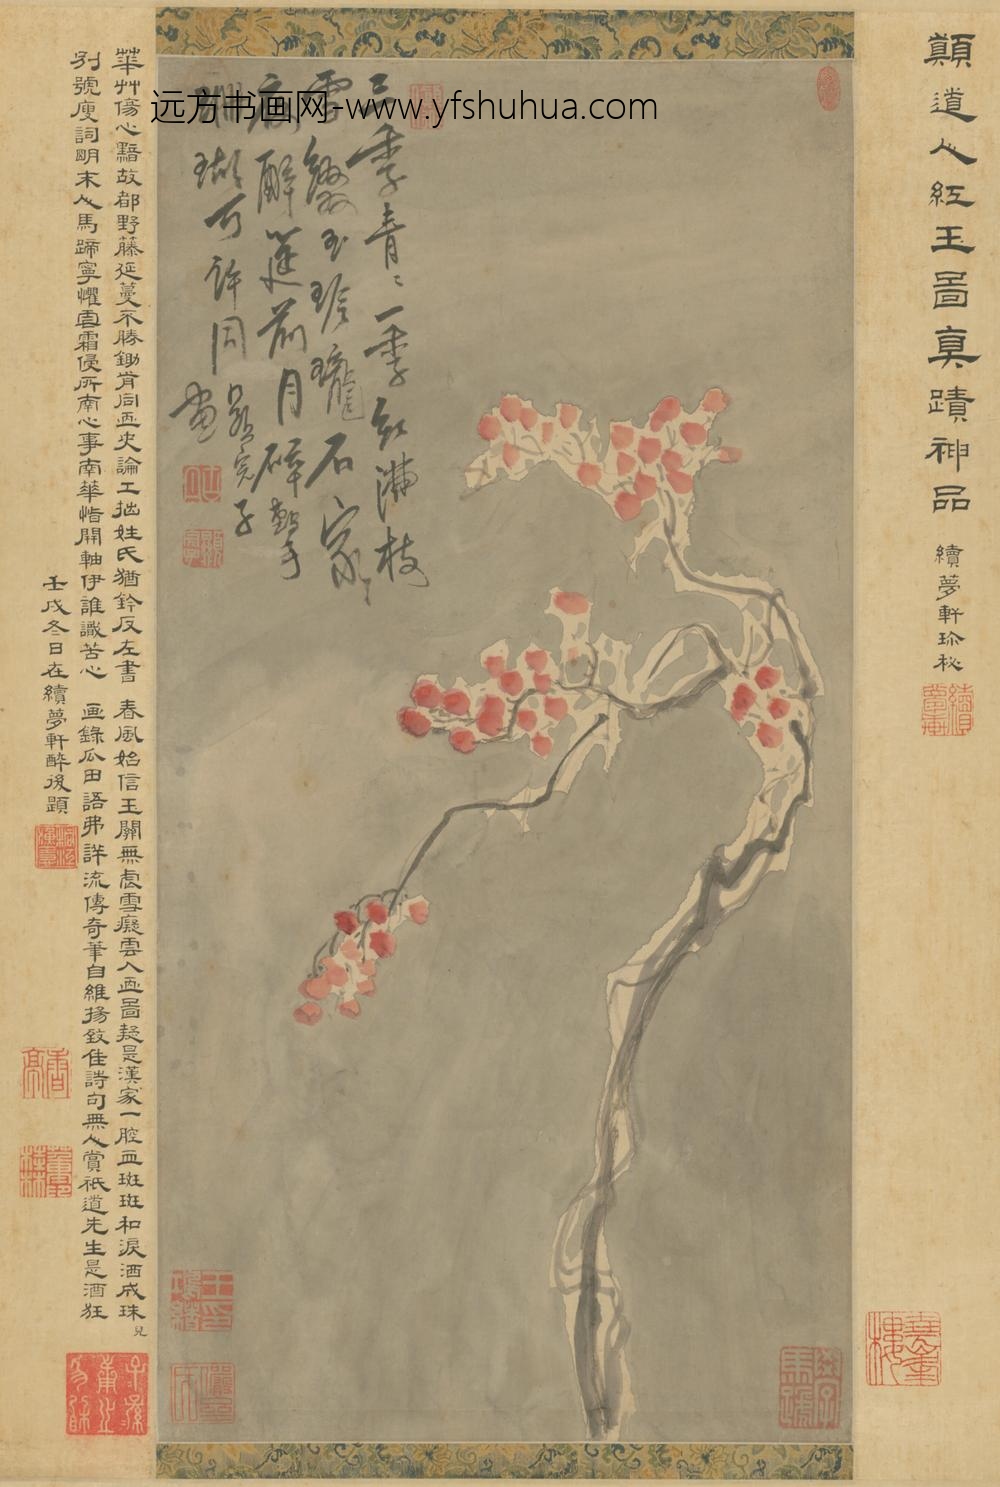 顛道人紅玉圖真蹟神品 續夢軒珍秘
远方书画网-www.yfshuhua.com
三季青青一季紅滿枝
雪綴玉玲瓏石家
痴醉筵前月碎擊
珊瑚可許同
畫
華艸傷心黯故都野藤延蔓不勝鋤肯同畫史論工拙姓氏猶鈐反左書 春風始信玉關無處雪癡雲入畫圖疑是漢家一腔血斑斑和淚洒成珠
別號廋詞明末人馬蹄寧懼雪霜侵所南心事南華悟開軸伊誰識苦心 畫錄瓜田語弗詳流傳奇筆自維揚致佳詩句無人賞祇道先生是酒狂
壬戌冬日在續夢軒醉後題